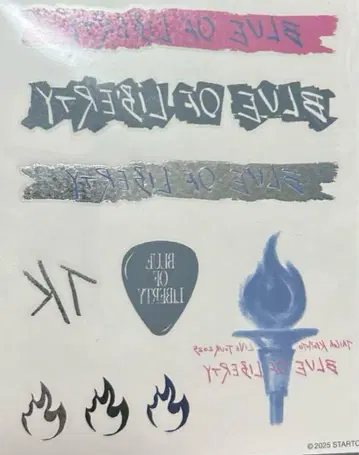 BLUE OF LIBERTY
BLUE OF LIBERTY
BLUE OF LIBERTY
TK
BLUE
OF
LIBERTY
TAIGA KYOMOTO
LIVE TOUR 2025
BLUE OF LIBERTY
© 2025 STARTO